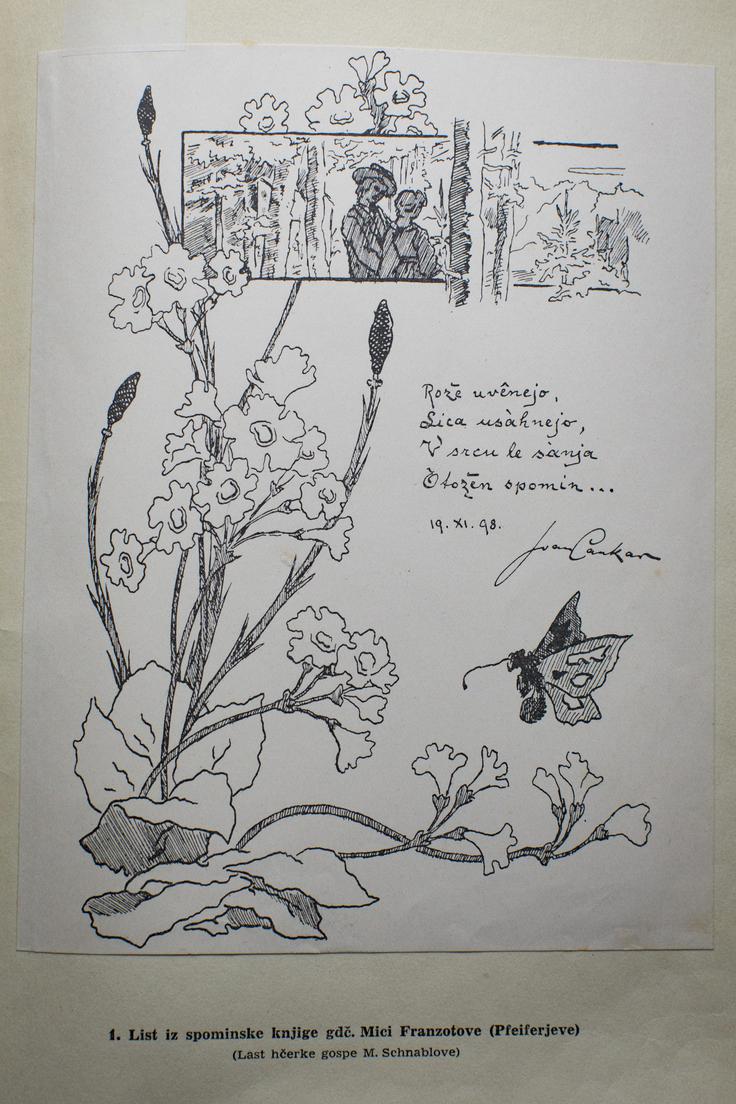 Rože uvênejo,
Lica usàhnejo,
V srcu le sànja
Otožen spomin...
19. XI. 98.
Ivan Cankar
1. List iz spominske knjige gdč. Mici Franzotove (Pfeiferjeve)
(Last hčerke gospe M. Schnablove)